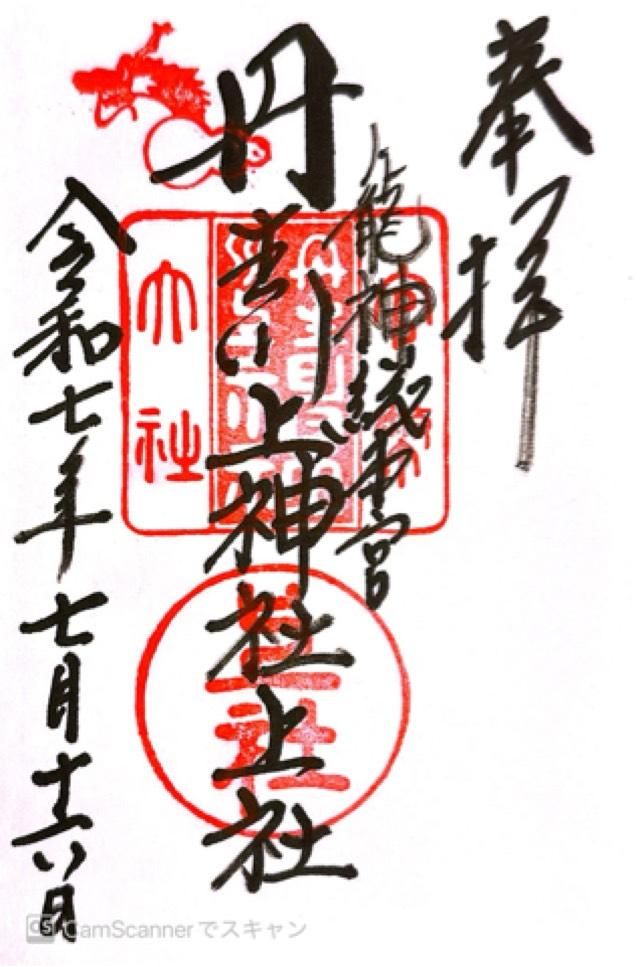 奉拝
龍神総本宮
丹生川上神社上社
大社
令和七年七月十六日
CS CamScannerでスキャン